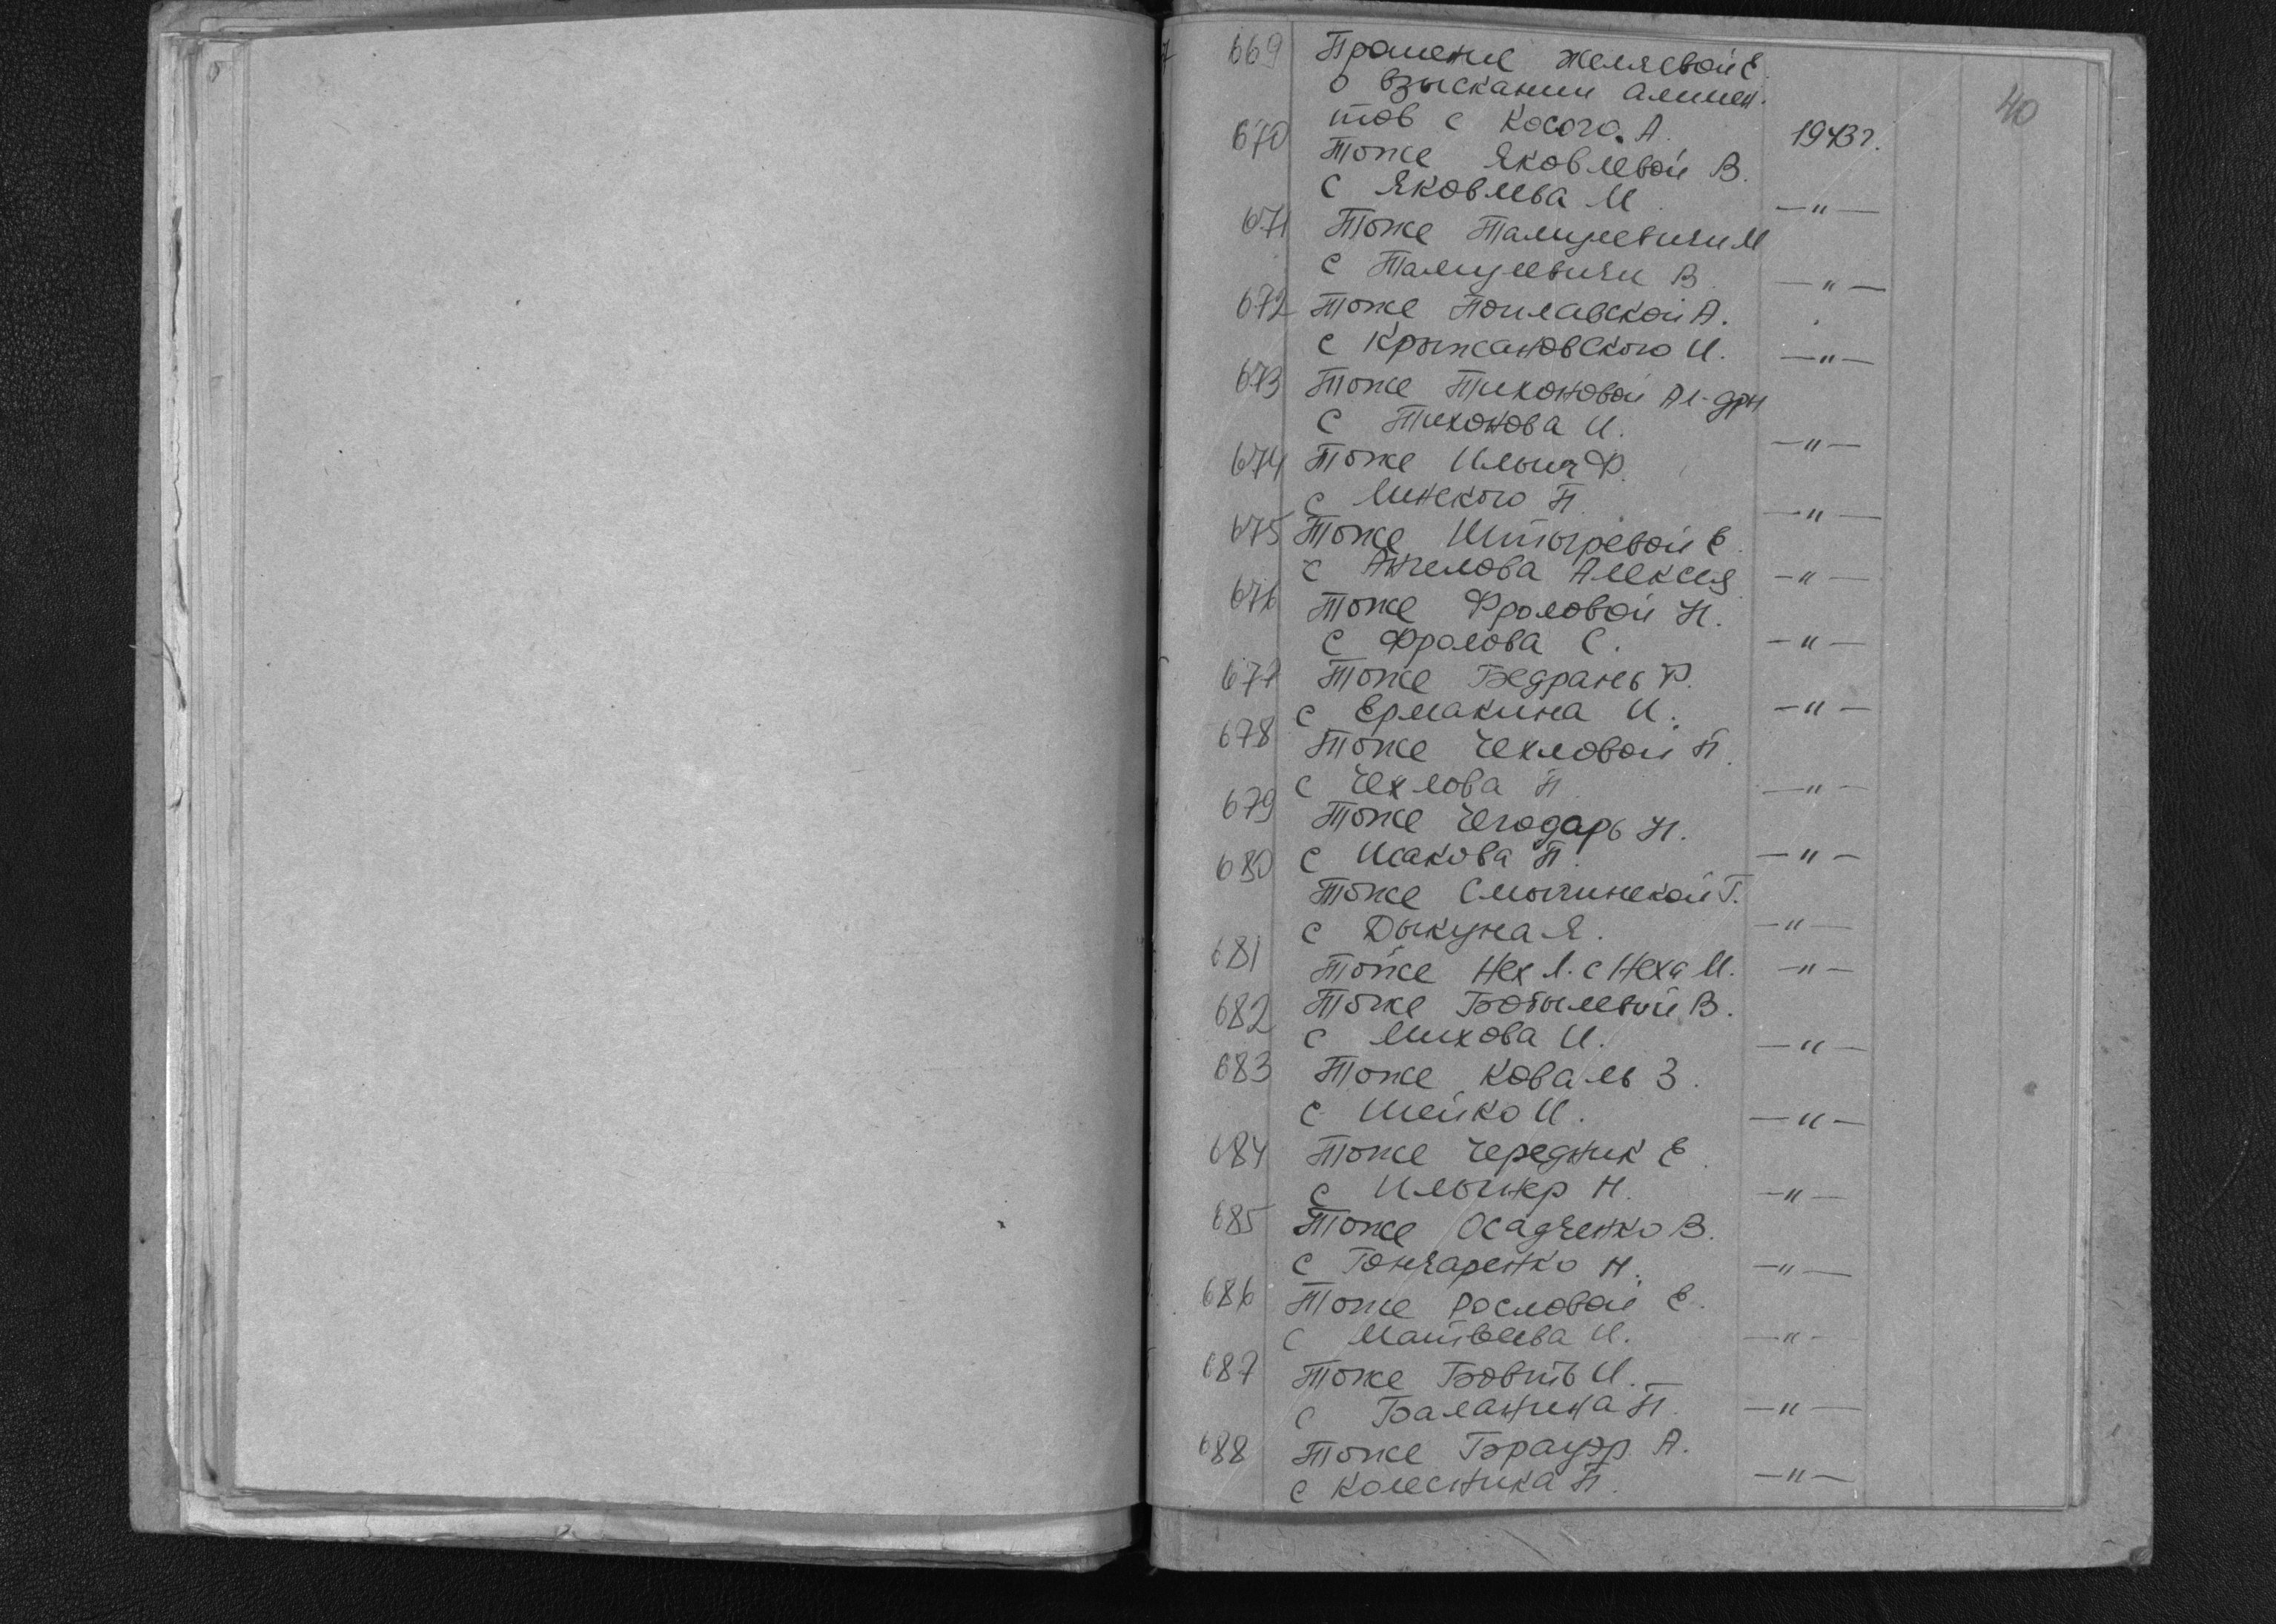 40
669 Прошение Желяевой Е.
о взыскании алимен-
тов с Косого А. 1943 г.
670 Тоже Яковлевой В.
с Яковлева М. —"—
671 Тоже М
с В. —"—
672 Тоже Поплавской А.
с Крыжановского И. —"—
673 Тоже Тихоновой Ал-дры
с Тихонова И. —"—
674 Тоже Ф.
с Минского П. —"—
675 Тоже Е.
с Ангелова Алексея —"—
676 Тоже Фроловой Н.
с Фролова С. —"—
677 Тоже Бедрань Ф.
с Ермакина И. —"—
678 Тоже Чехловой П.
с Чехлова П. —"—
679 Тоже Чегодарь Н.
с Исакова П. —"—
680 Тоже Г.
с Дыкуна Я. —"—
681 Тоже Нех Л. с Неха М. —"—
682 Тоже Бобылевой В.
с Михова И. —"—
683 Тоже Коваль З.
с Шейко И. —"—
684 Тоже Чередник Е.
с Н. —"—
685 Тоже Осадченко В.
с Гончаренко Н. —"—
686 Тоже Рословой Е.
с Матвеева И. —"—
687 Тоже И.
с Баланина П. —"—
688 Тоже Брауэр А.
с Колесника П. —"—